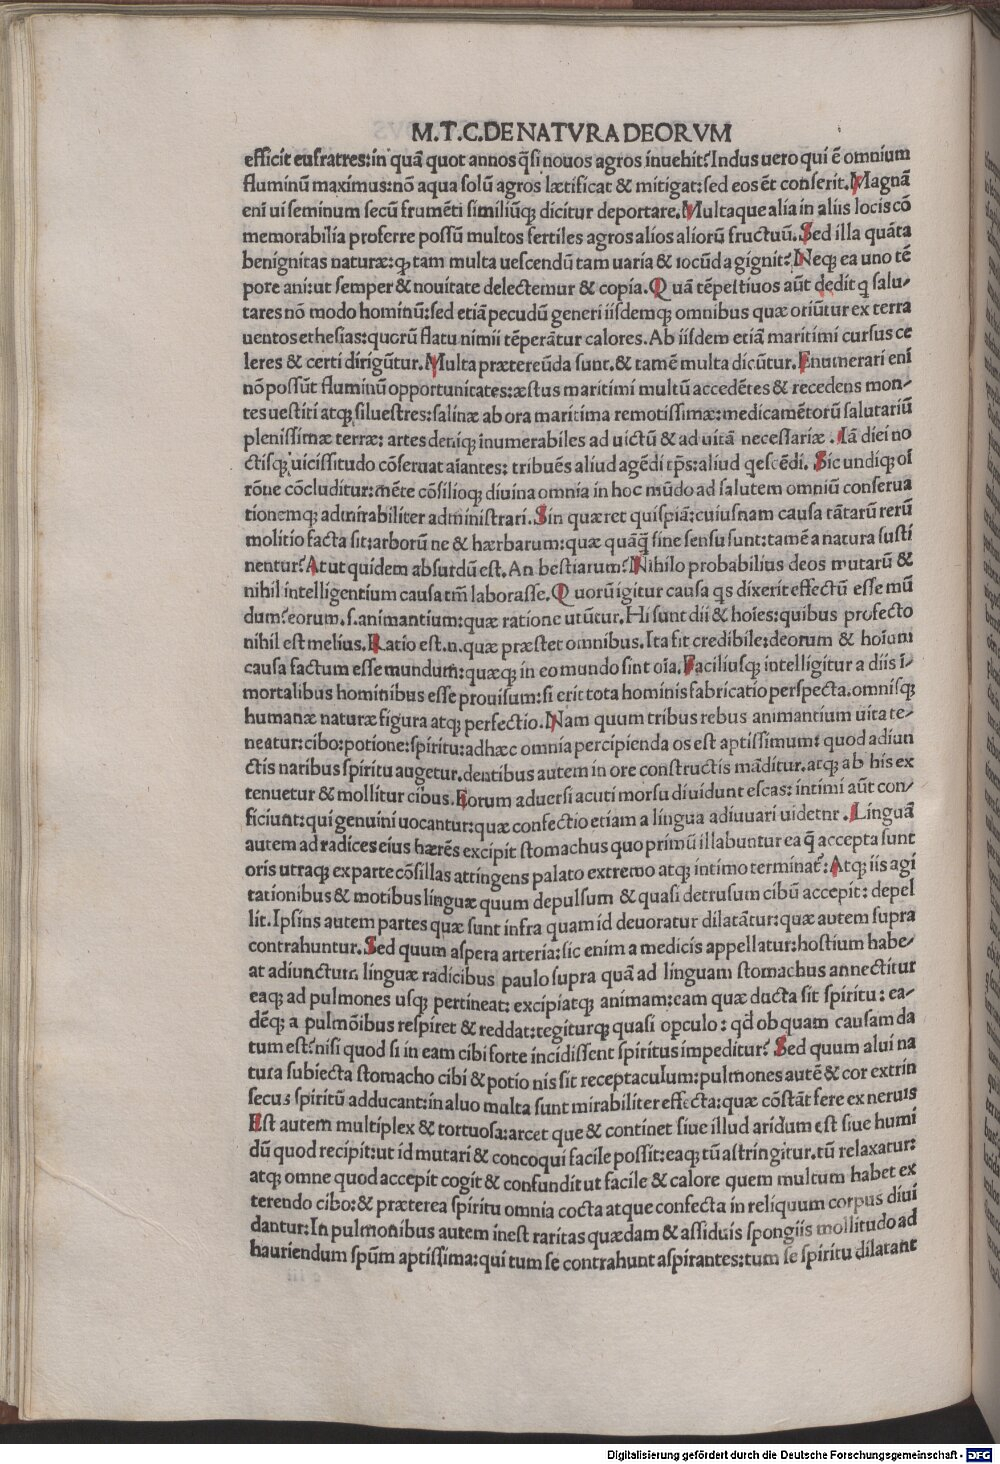 M.T.C.DE NATVRA DEORVM
efficit eufratres:in quā quot annos q̄si nouos agros inuehit?Indus uero qui ē omnium
fluminū maximus:nō aqua solū agros lætificat & mitigat:sed eos ēt conserit.Magnā
enī ui seminum secū frumēti similiūq; dicitur deportare.Multaque alia in aliis locis cō
memorabilia proferre possū multos fertiles agros alios aliorū fructuū.Sed illa quāta
benignitas naturæ:q; tam multa uescendū tam uaria & iocūda gignit?Neq; ea uno tē
pore ani:ut semper & nouitate delectemur & copia.Quā tēpestiuos aūt dedit q salu-
tares nō modo hominū:sed etiā pecudū generi iisdemq; omnibus quæ oriūtur ex terra
uentos ethesias:quorū flatu nimii tēperātur calores.Ab iisdem etiā maritimi cursus ce
leres & certi dirigūtur.Multa prætereūda sunt.& tamē multa dicūtur.Enumerari enī
nō possūt fluminū opportunitates:æstus maritimi multū accedētes & recedens mon-
tes uestiti atq; siluestres:salinæ ab ora maritima remotissimæ:medicamētorū salutariū
plenissimæ terræ: artes deniq; inumerabiles ad uictū & ad uitā necessariæ .Iā diei no
ctisq; uicissitudo cōseruat aīantes: tribuēs aliud agēdi tp̄s:aliud qescēdi. Sic undiq; oī
rōne cōcluditur:mēte cōsilioq; diuina omnia in hoc mūdo ad salutem omniū conserua
tionemq; admirabiliter administrari.Sin quæret quispiā:cuiusnam causa tātarū rerū
molitio facta sit:arborū ne & hærbarum:quæ quāq̄ sine sensu sunt:tamē a natura susti
nentur?At ut quidem absurdū est.An bestiarum?Nihilo probabilius deos mutarū &
nihil intelligentium causa tm̄ laborasse.Quorū igitur causa qs dixerit effectū esse mū
dum?eorum.s.animantium:quæ ratione utūtur.Hi sunt dii & hoīes:quibus profecto
nihil est melius.Ratio est.n.quæ præstet omnibus.Ita fit credibile:deorum & hoīum
causa factum esse mundum:quæq; in eo mundo sint oīa.Faciliusq; intelligitur a diis ī-
mortalibus hominibus esse prouisum:si erit tota hominis fabricatio perspecta.omnisq;
humanæ naturæ figura atq; perfectio.Nam quum tribus rebus animantium uita te-
neatur:cibo:potione:spiritu:ad hæc omnia percipienda os est aptissimum: quod adiun
ctis naribus spiritu augetur.dentibus autem in ore constructis māditur.atq; ab his ex
tenuetur & mollitur cibus.Eorum aduersi acuti morsu diuidunt escas: intimi aūt con-
ficiunt:qui genuini uocantur:quæ confectio etiam a lingua adiuuari uidetnr .Linguā
autem ad radices eius hærēs excipit stomachus quo primū illabuntur ea q̄ accepta sunt
oris utraq; ex parte cōsillas attingens palato extremo atq; intimo terminat̄: Atq; iis agi
tationibus & motibus linguæ quum depulsum & quasi detrusum cibū accepit: depel
lit.Ipsins autem partes quæ sunt infra quam id deuoratur dilatātur:quæ autem supra
contrahuntur.Sed quum aspera arteria:sic enim a medicis appellatur:hostium habe-
at adiunctum linguæ radicibus paulo supra quā ad linguam stomachus annectitur
eaq; ad pulmones usq; pertineat: excipiatq; animam:eam quæ ducta sit spiritu: ea-
dēq; a pulmōibus respiret & reddat:tegiturq; quasi opculo: qd̄ ob quam causam da
tum est?nisi quod si in eam cibi forte incidissent spiritus impeditur? Sed quum alui na
tura subiecta stomacho cibi & potio nis sit receptaculum:pulmones autē & cor extrin
secus spiritū adducant:in aluo multa sunt mirabiliter effecta:quæ cōstāt fere ex neruis
Est autem multiplex & tortuosa:arcet que & continet siue illud aridum est siue humi
dū quod recipit:ut id mutari & concoqui facile possit:eaq; tū astringitur.tū relaxatur:
atq; omne quod accepit cogit & confundit ut facile & calore quem multum habet ex
terendo cibo:& præterea spiritu omnia cocta atque confecta in reliquum corpus diui
dantur:In pulmonibus autem inest raritas quædam & assiduis spongiis mollitudo ad
hauriendum spūm aptissima:qui tum se contrahunt aspirantes:tum se spiritu dilatant
Digitalisierung gefördert durch die Deutsche Forschungsgemeinschaft - DFG